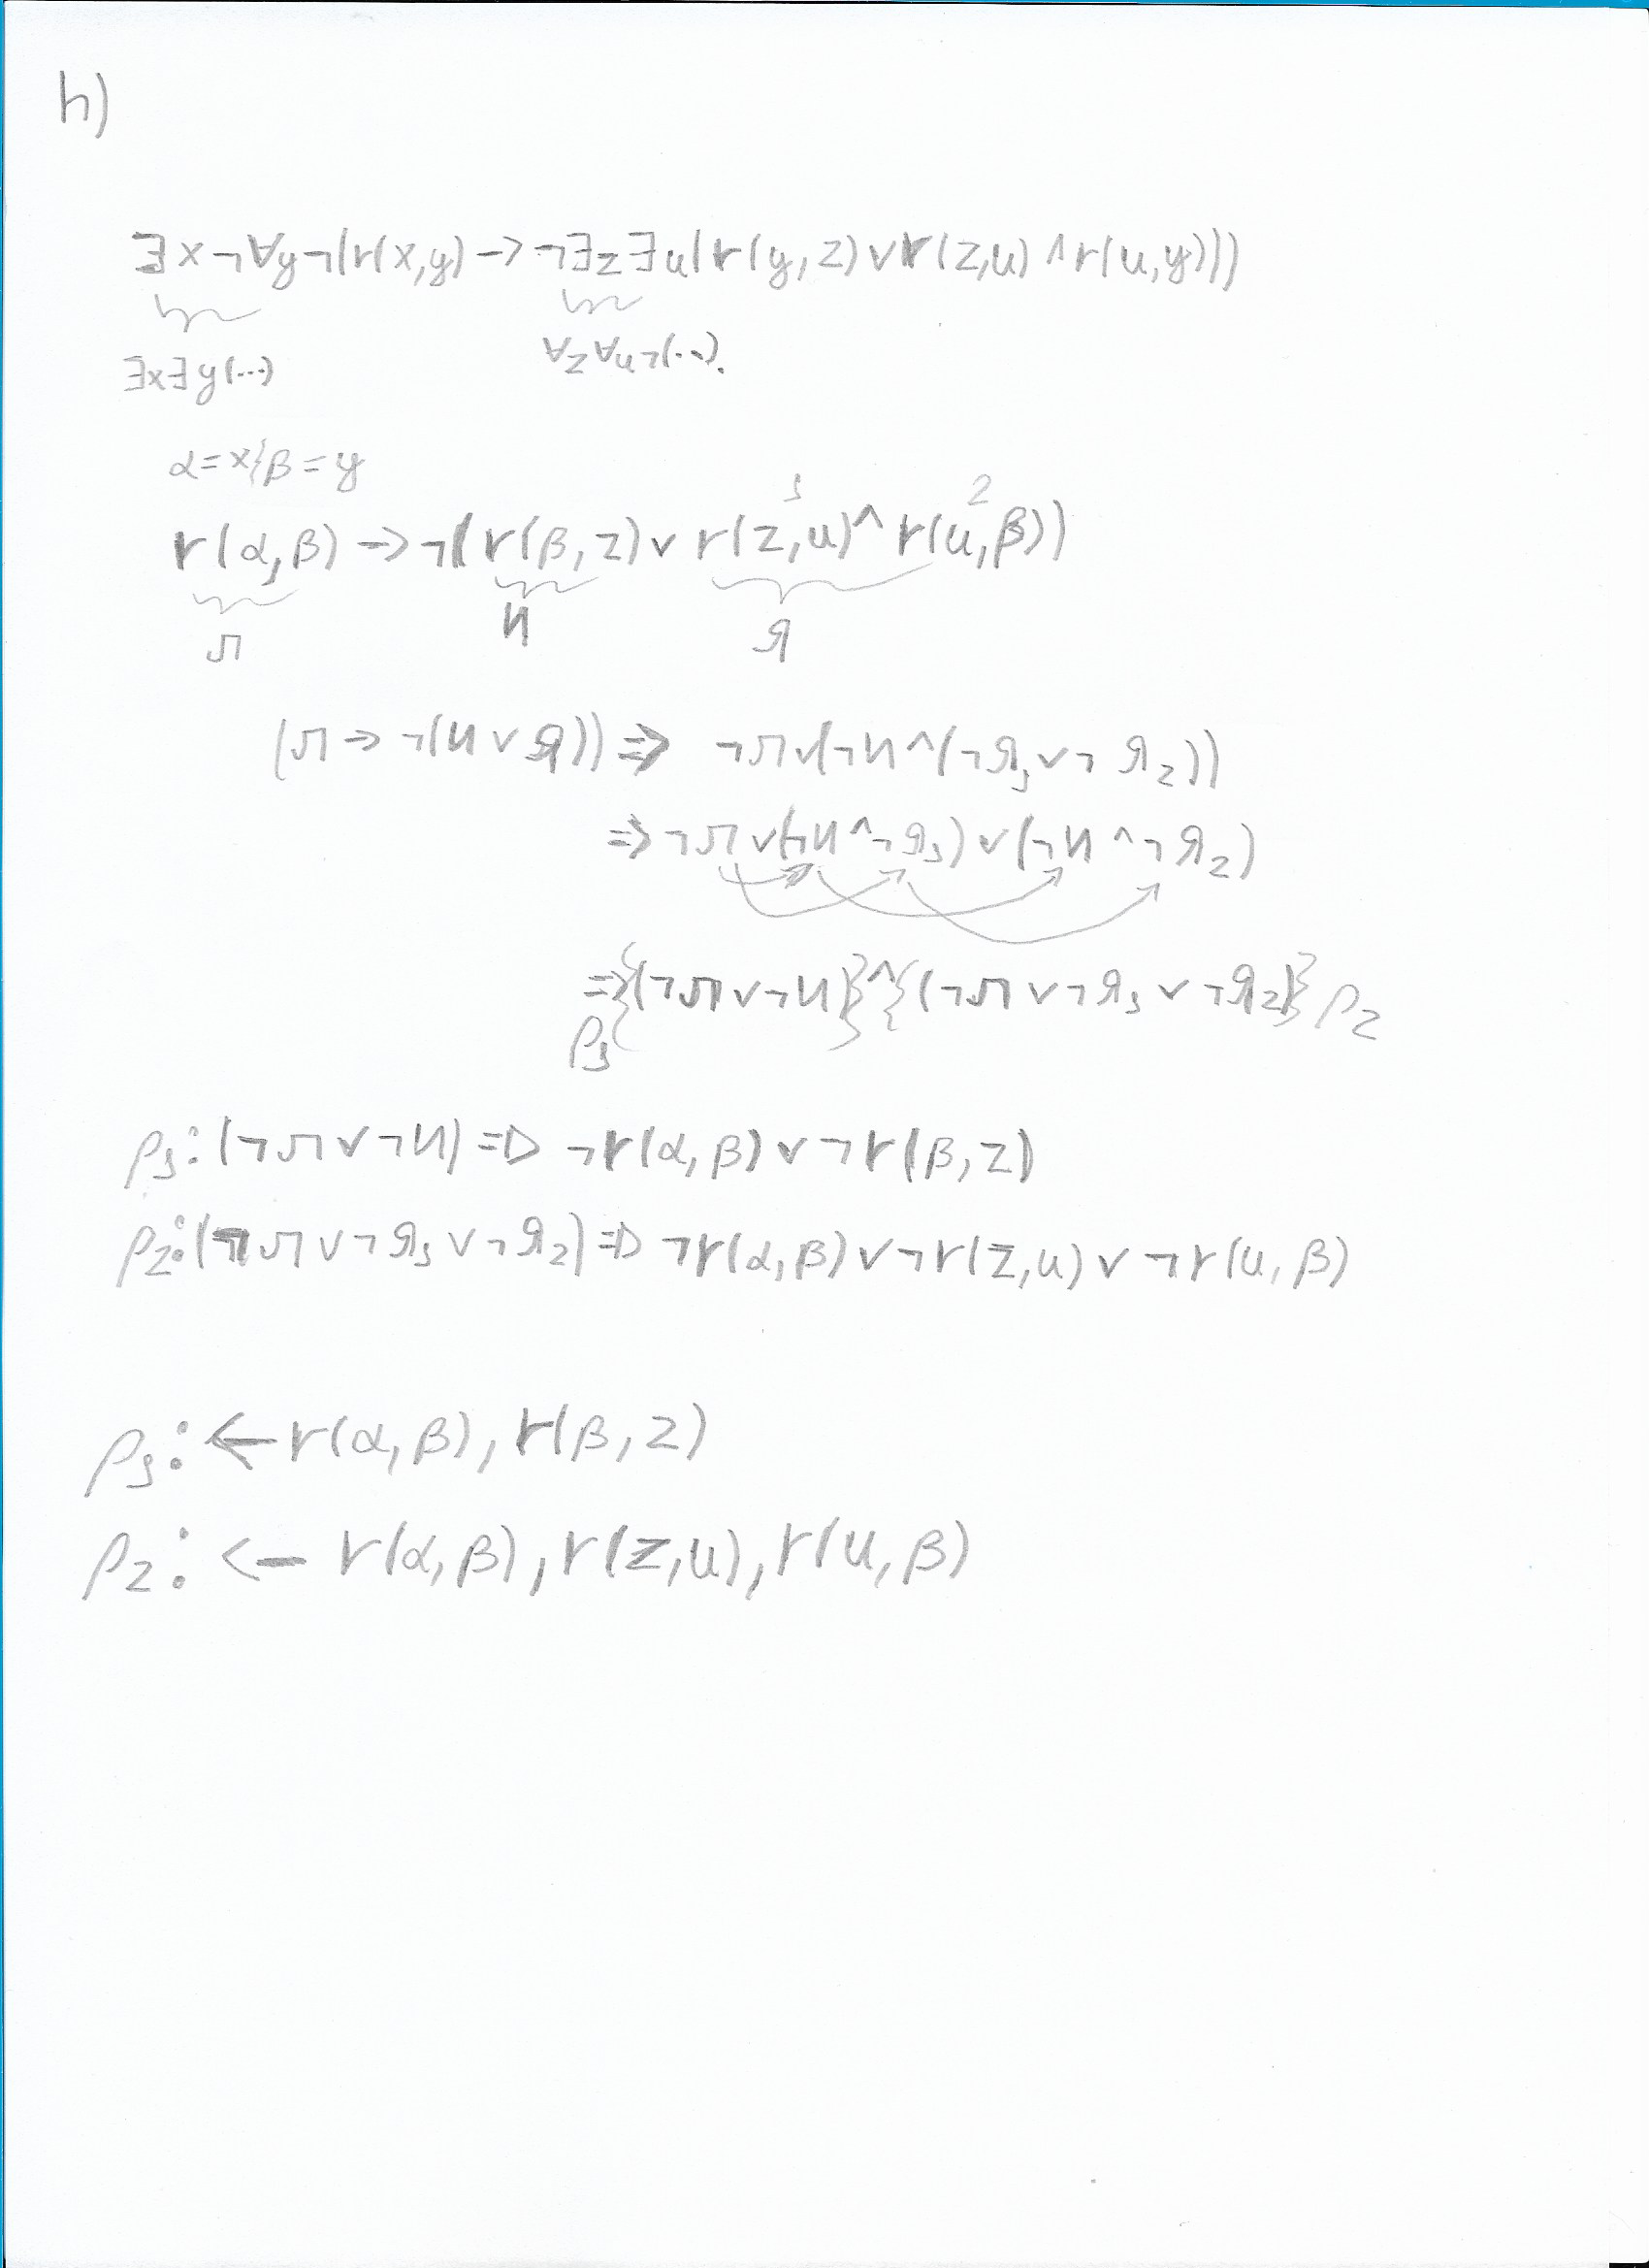 h)
∃x¬∀y¬(r(x,y)→¬∃z∃u(r(y,z)∨r(z,u)∧r(u,y)))
∃x∃y(...)
∀z∀u¬(...).
α=x}β=y
1 2
r(α,β)→¬(r(β,z)∨r(z,u)∧r(u,β))
Л И Я
(Л→¬(И∨Я))⇒ ¬Л∨(¬И∧(¬Я₁∨¬Я₂))
⇒¬Л∨(¬И∧¬Я₁)∨(¬И∧¬Я₂)
⇒{(¬Л∨¬И)}∧{(¬Л∨¬Я₁∨¬Я₂)}ρ₂
ρ₁
ρ₁:(¬Л∨¬И)⇒ ¬r(α,β)∨¬r(β,z)
ρ₂:(¬Л∨¬Я₁∨¬Я₂)⇒ ¬r(α,β)∨¬r(z,u)∨¬r(u,β)
ρ₁:←r(α,β),r(β,z)
ρ₂:← r(α,β),r(z,u),r(u,β)